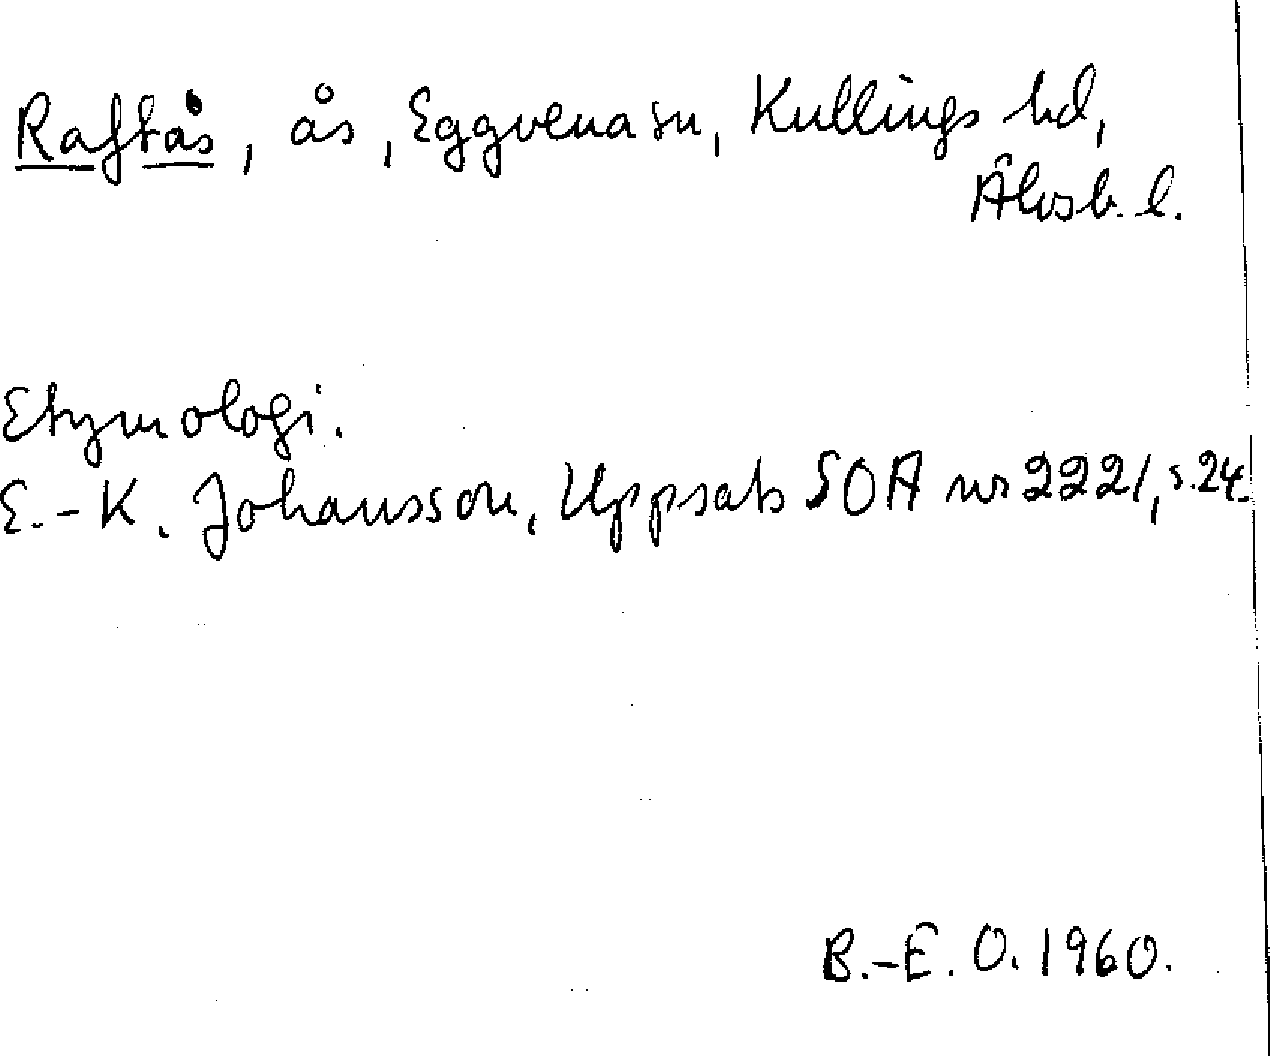 Raftås, ås, Eggvena sn, Kullings hd,
Älvsb. l.
Etymologi.
E.-K. Johansson, Uppsats SOA nr 2221, s. 24.
B.-E. O. 1960.